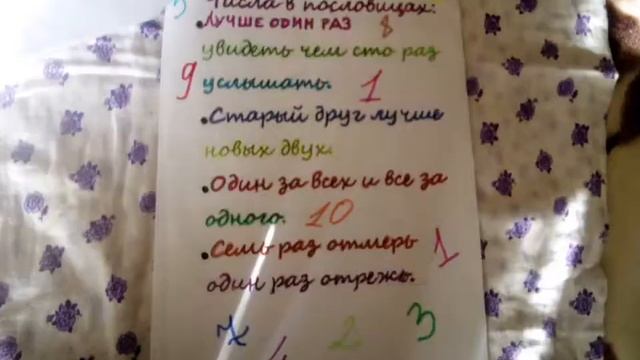 Числа в пословицах:
• ЛУЧШЕ ОДИН РАЗ 8
увидеть чем сто раз
9 услышать. 1
• Старый друг лучше
новых двух.
• Один за всех и все за
одного. 10
• Семь раз отмерь 1
один раз отрежь.
2 3